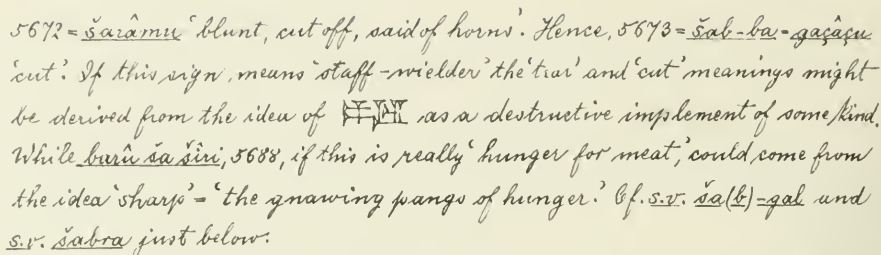 5672 = šarâmu ‘blunt, cut off, said of horns’. Hence, 5673 = šab-ba = gaçâçu
‘cut’. If this sign, means ‘staff-wielder’ the ‘tear’ and ‘cut’ meanings might
be derived from the idea of as a destructive implement of some kind.
While burû ša šîri, 5688, if this is really ‘hunger for meat’, could come from
the idea ‘sharp’ = ‘the gnawing pangs of hunger’. Cf. s.v. ša(b)-gal and
s.v. šabra just below.